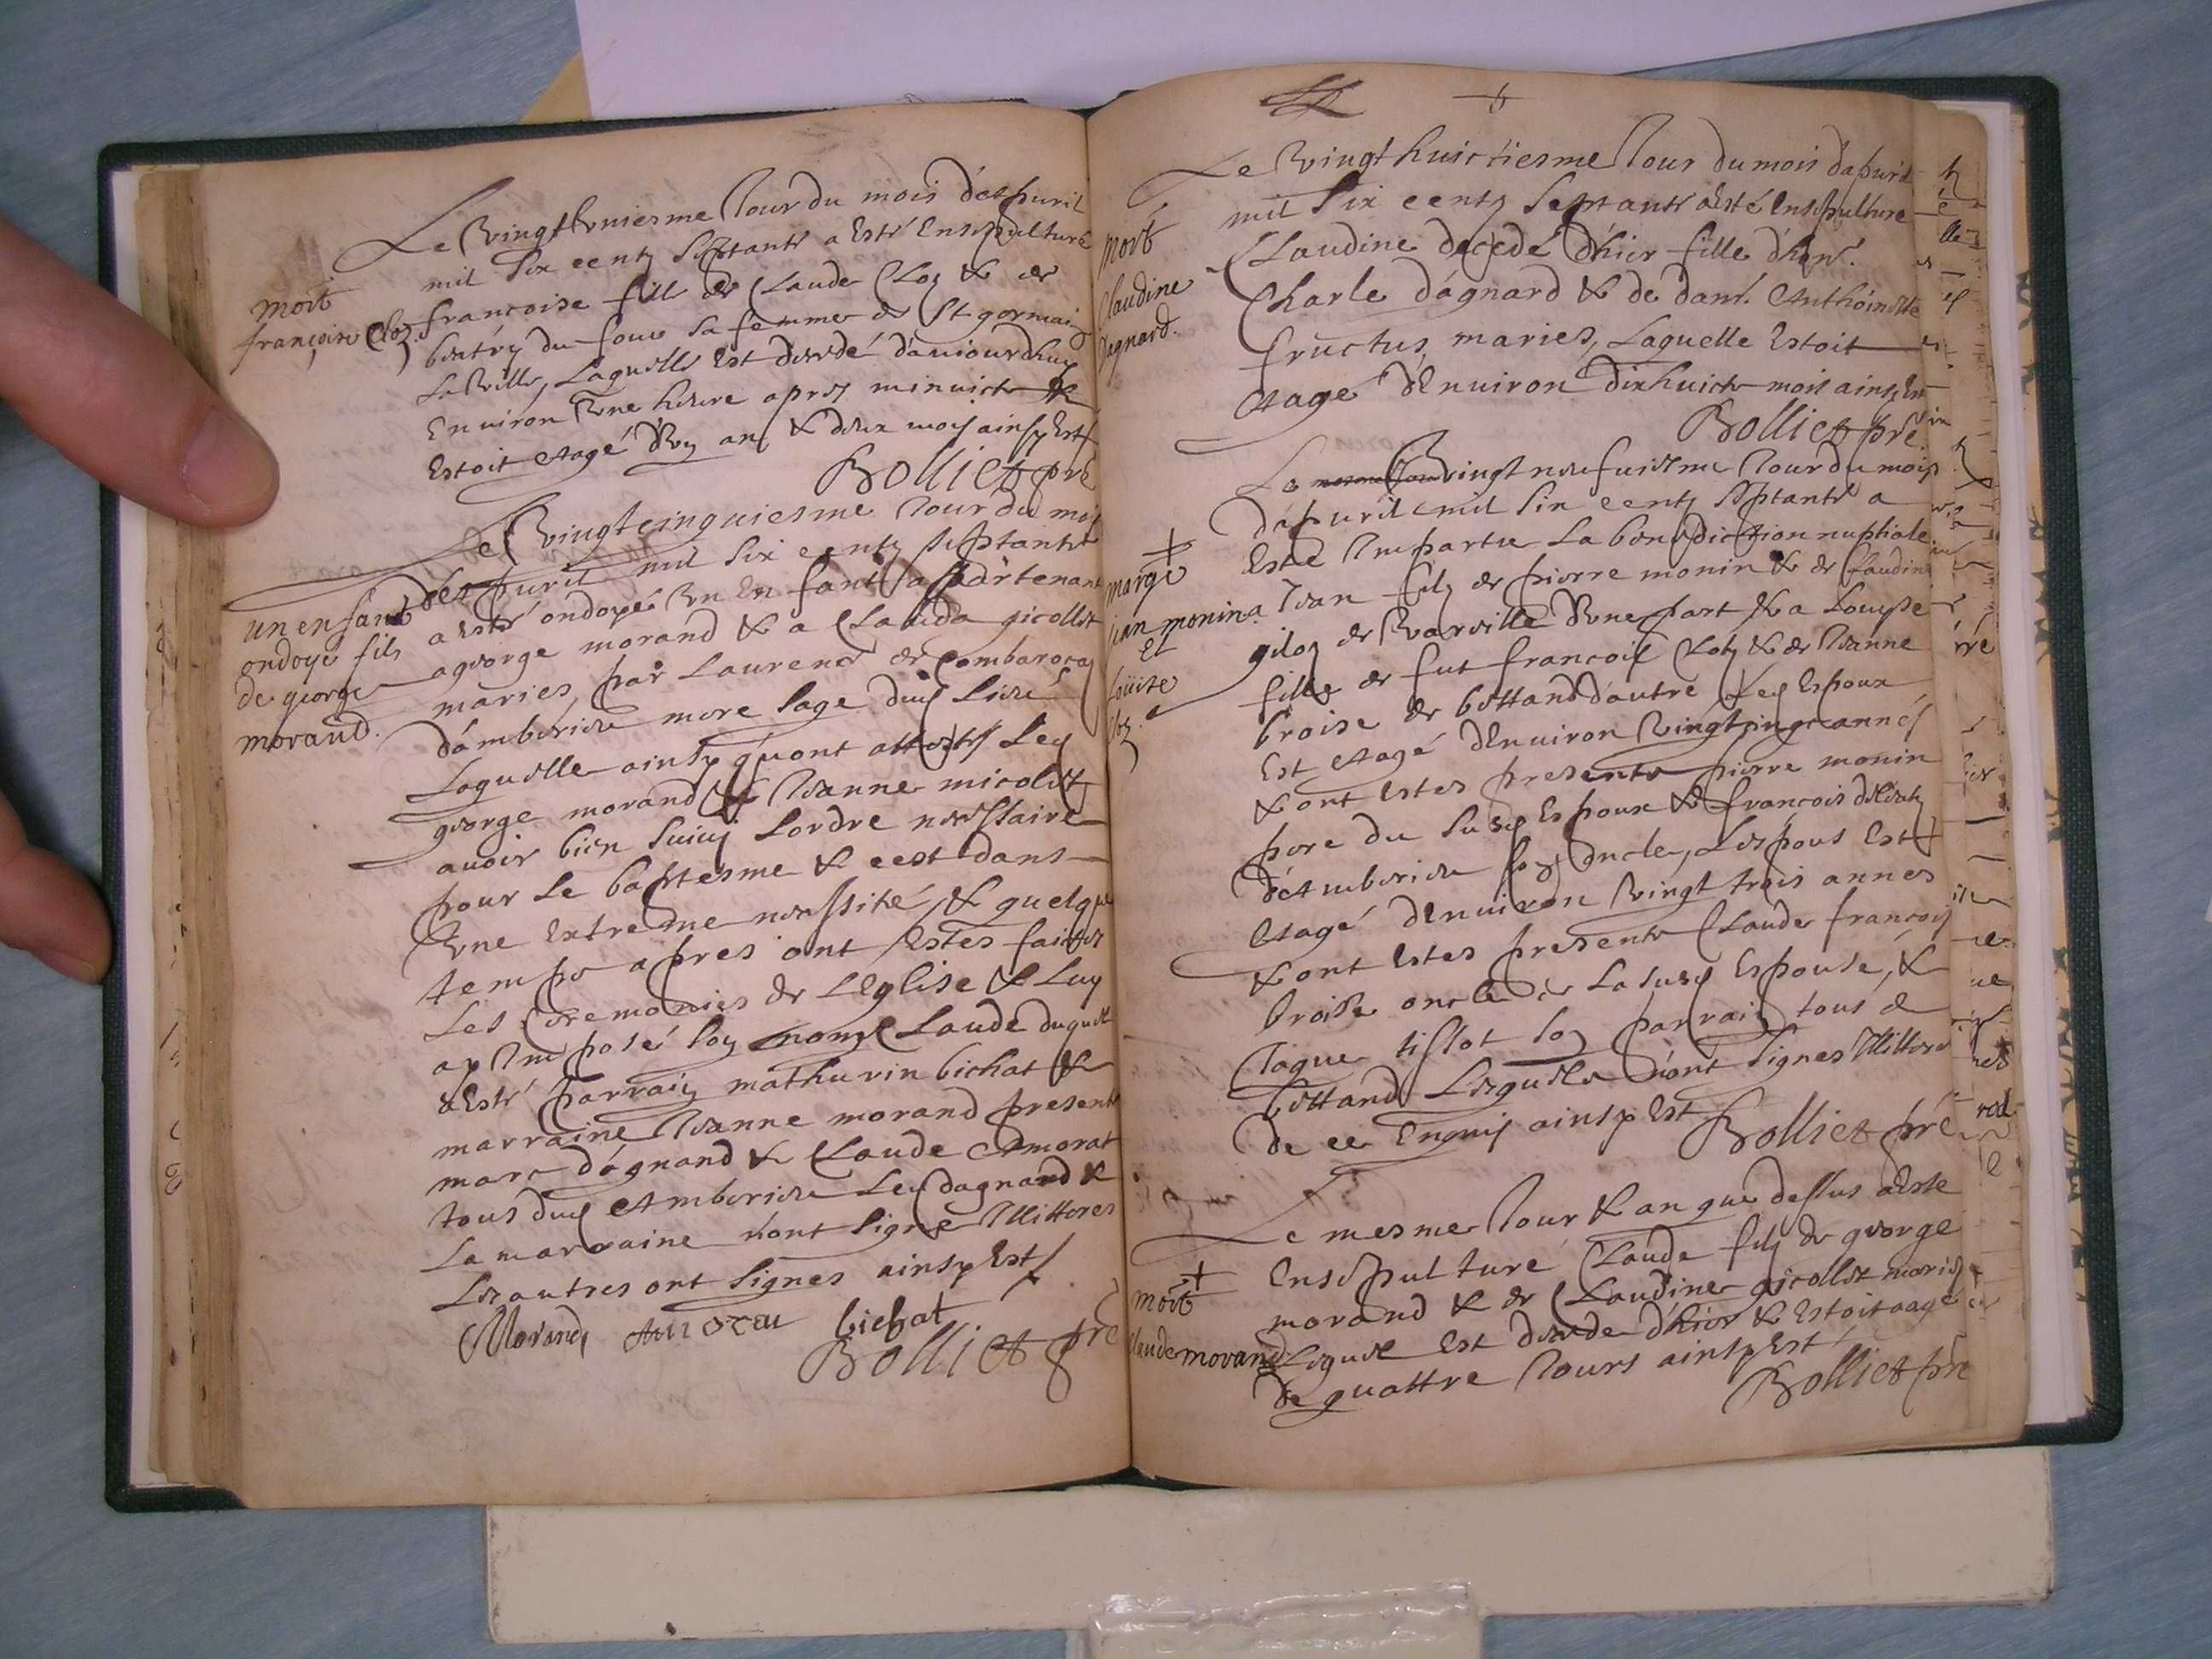 Le Vingt Uniesme Jour du mois d'Apuril
mil Six centz Septante a Esté Ensepulturé
mort
françoise Cloz.
francoise fille de Claude Cloz & de
du four sa femme de St germain
La Ville, Laquelle Est decedé d'auiourdhuy
Enuiron Vne heure apres minuict &
Estoit eagé d'Vn an & deux moys ainsy Est
Bolliet pre
Le Vingt cinquiesme Jour du mois
d'Apuril mil Six centz septante
un enfant
ondoyé fils
de george
morand.
a Esté ondoyé Vn Enfant appartenant
a george morand & a Clauda nicollet
maries, par Laurence de
d'amberieu mere sage dud Lieu
Laquelle ainsy q'uont attesté Led
george morand & Jeanne nicolet
auoir bien suiuy Lordre necessaire
pour le baptesme & cest dans
Vne Extreme necessité, & quelque
temps apres ont Estes faictes
Les Ceremonies de LEglise & Luy
ay Imposé son nom Claude duquel
a Esté parrain mathurin bichat &
marraine Jeanne morand present
marc dagnand & Claude Amorat
tous dud Amberieu Led dagnand &
La marraine n'ont signé Illitteres
Les autres ont signes ainsy Est
Morand bichat
Bolliet pre
Le Vingt huictiesme Jour du mois d'apuril
mil Six centz Septante a Esté Ensepulturé
mort
Claudine
Dagnard.
Claudine decedé d'hier fille d'hon.
Charle d'agnard & de dam. Anthoinette
fructus maries, Laquelle Estoit
eagé d'Enuiron dix huict mois ainsy Est
Bolliet pre
Le Vingt neufuiesme Jour du mois
d'apuril mil Six centz Septante a
Esté Impartie La benediction nuptiale
mariage
jean monin
Et
Loüise
Cloz.
a Jean filz de pierre monin & de Claudine
giloz de Varville d'Vne part & a Louyse
fille de fut francois Clotz & de Jeanne
broise de bettand d'autre Led Espoux
Est eagé d'Enuiron Vingt cinq annes
& ont Estes presents pierre monin
pere du susd Espoux & francois
d'Amberieu son oncle, Lespouse Est
eagé d'Enuiron Vingt trois annes
& ont Estes presents Claude francois
broise oncle de La susd Espouse, &
Jaque tissot son parrain tous de
bettand Lesquels n'ont signes Illitteres
de ce Enquis ainsy Est
Bolliet pre
Le mesme Jour & an que dessus a Este
Ensepulturé Claude filz de george
mort
Claude morand
morand & de Claudine nicollet maries
Lequel Est decedé d'hier & Estoit aagé
de quattre Jours ainsy Est
Bolliet pre